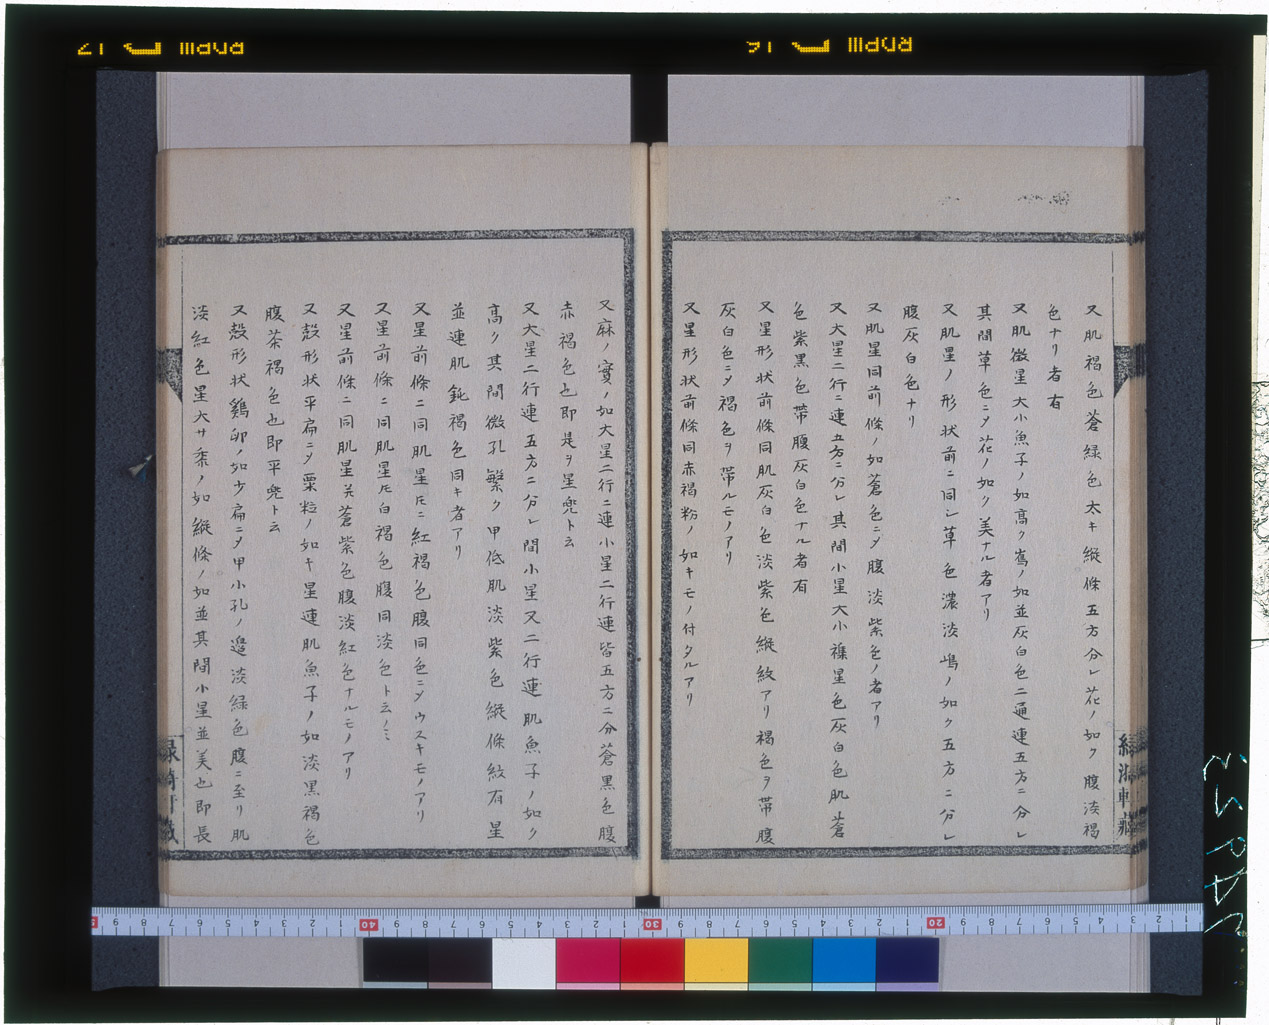 又肌褐色蒼緑色太キ縦條五方分レ花ノ如ク腹淡褐
色ナリ者有
又肌微星大小魚子ノ如高ク嶌ノ如並灰白色二通連五方ニ分レ
其間草色ニメ花ノ如ク美ナル者アリ
又肌星ノ形状前ニ同シ草色濃淡嶋ノ如ク五方ニ分レ
腹灰白色ナリ
又肌星同前條ノ如蒼色ニメ腹淡紫色ノ者アリ
又大星二行ニ連五方ニ分レ其間小星大小襍星色灰白色肌蒼
色紫黒色帶腹灰白色ナル者有
又星形状前條同肌灰白色淡紫色縦紋アリ褐色ヲ帶腹
灰白色ニメ褐色ヲ帶ルモノアリ
又星形状前條同赤褐粉ノ如キモノ付タルアリ
又麻ノ實ノ如大星二行ニ連小星二行連皆五方ニ分蒼黒色腹
赤褐色也即是ヲ星兜ト云
又大星二行連五方ニ分レ間小星又二行連肌魚子ノ如ク
高ク其間微孔繁ク甲低肌淡紫色縦條紋有星
並連肌鈍褐色同キ者アリ
又星前條ニ同肌星𪜈ニ紅褐色腹同色ニメウスキモノアリ
又星前條ニ同肌星𪜈白褐色腹同淡色ト云々
又星前條ニ同肌星共蒼紫色腹淡紅色ナルモノアリ
又殻形状平扁ニメ粟粒ノ如キ星連肌魚子ノ如淡黒褐色
腹茶褐色也即平兜ト云
又殻形状鷄卵ノ如少扁ニメ甲小孔ノ邉淡緑色腹ニ至リ肌
淡紅色星大サ黍ノ如縦條ノ如並其間小星並美也即長